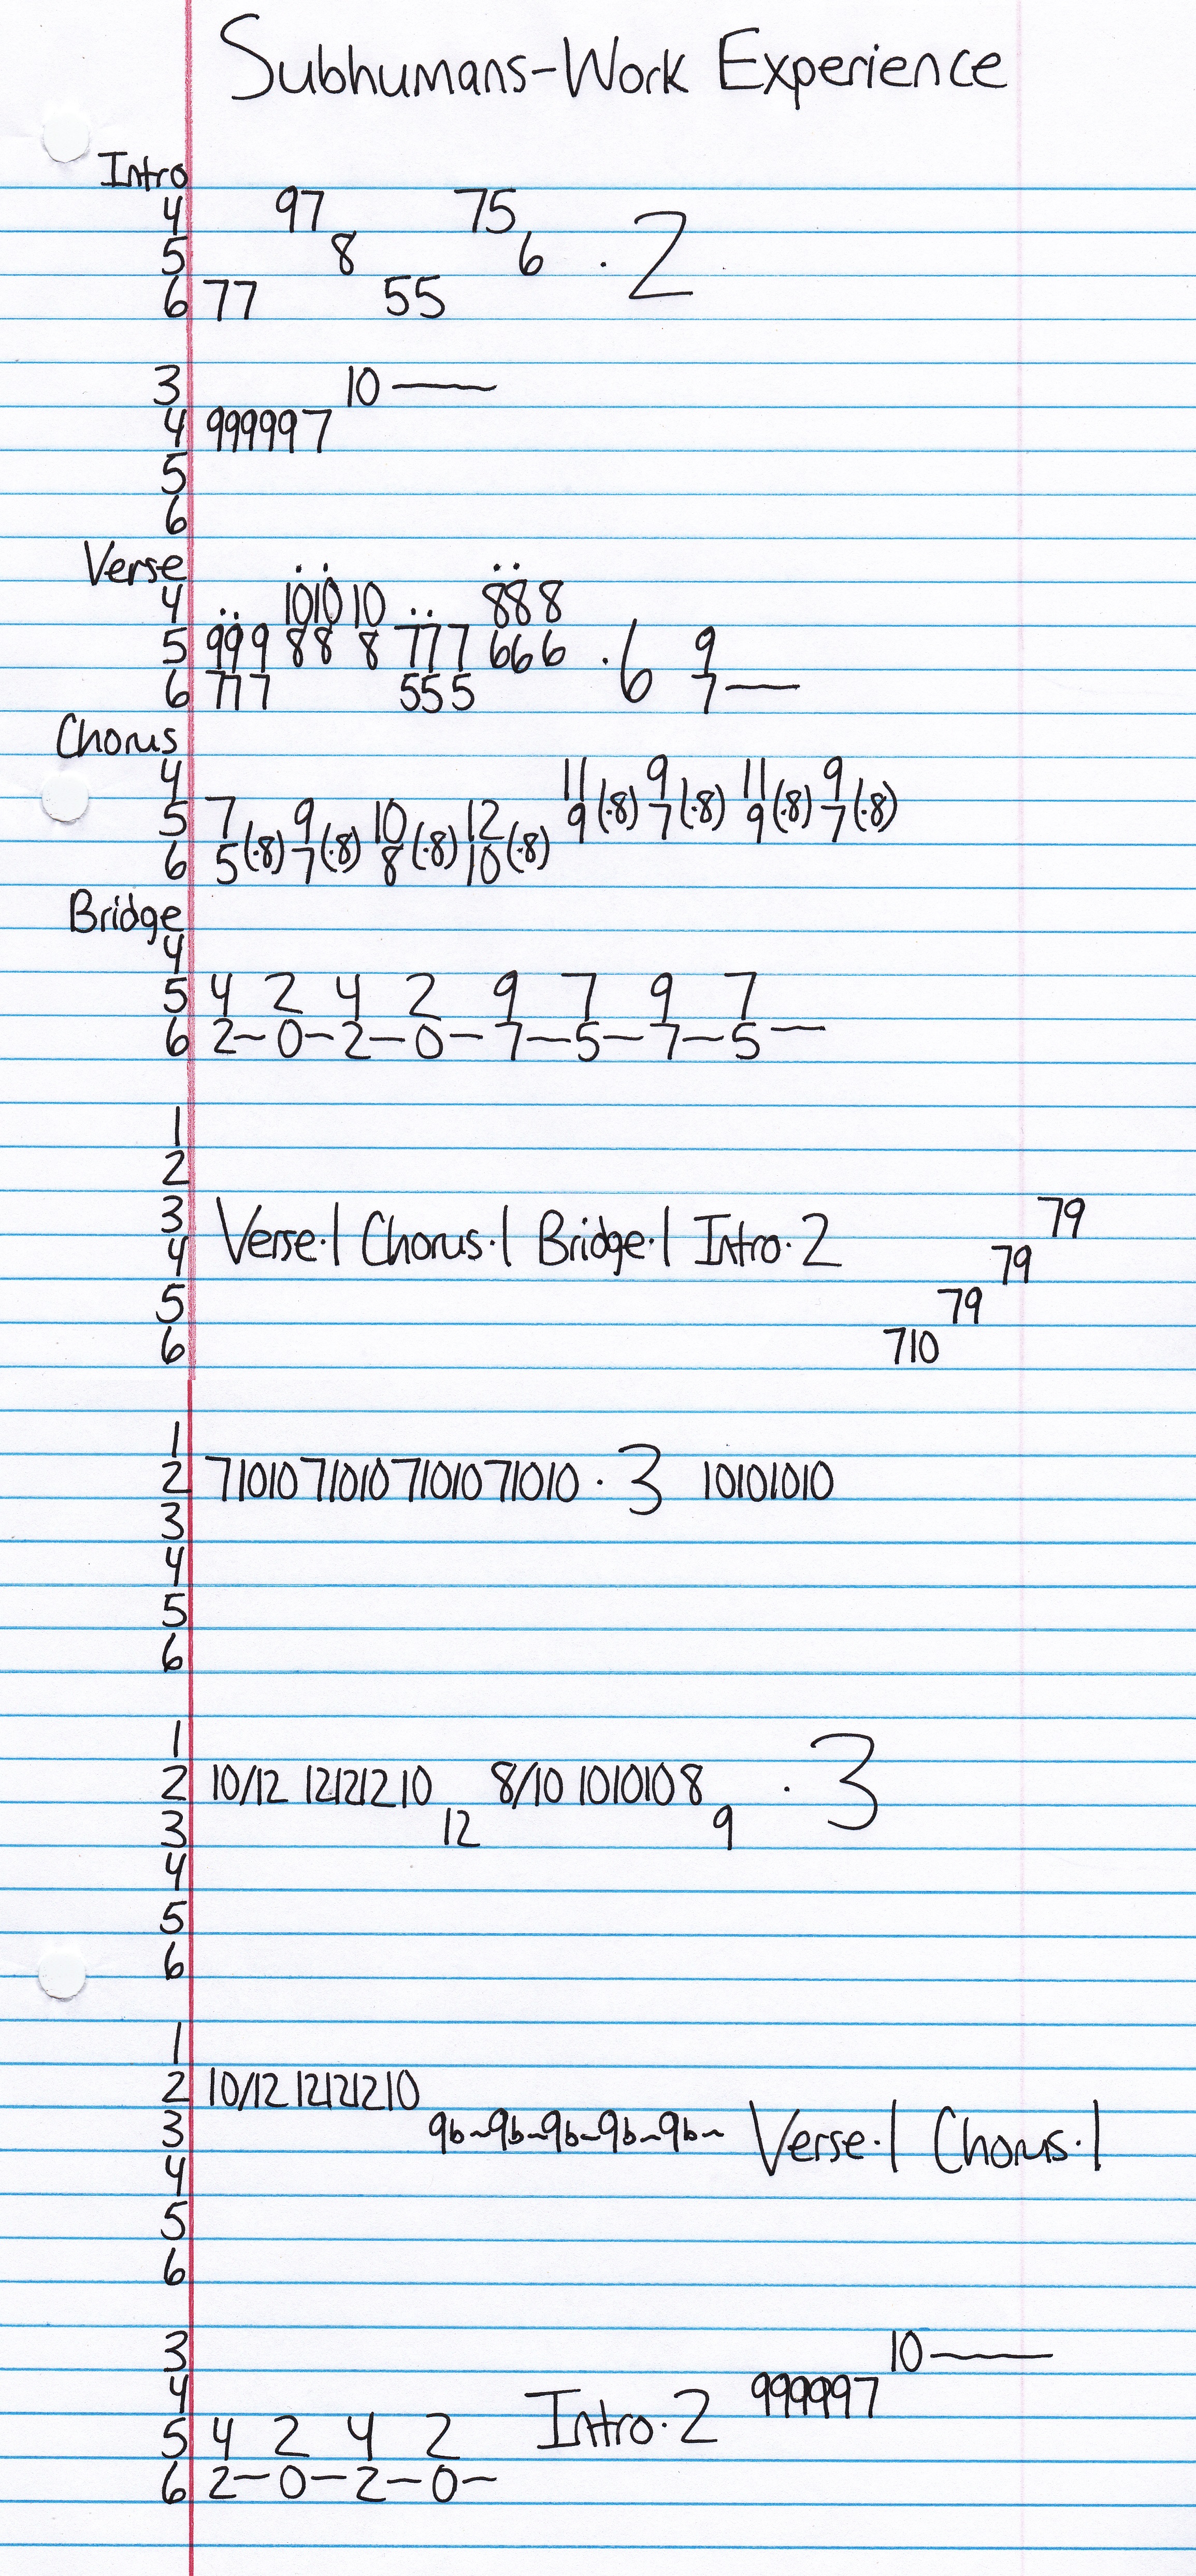 Subhumans-Work Experience
Intro
4 97 75
5 8 6 · 2
6 77 55
3 10 —
4 999997
5
6
Verse
4 10 10 10 8 8 8
5 9 9 9 8 8 8 7 7 7 6 6 6 · 6 9
6 7 7 7 5 5 5 7 —
Chorus
4 11 9 11 9
5 7 9 10 12 9 (·8) 7 (·8) 9 (·8) 7 (·8)
6 5 (·8) 7 (·8) 8 (·8) 10 (·8)
Bridge
4
5 4 2 4 2 9 7 9 7
6 2 — 0 — 2 — 0 — 7 — 5 — 7 — 5 —
1
2
3 79
4 Verse·1 Chorus·1 Bridge·1 Intro·2 79
5 79
6 710
1
2 71010 71010 71010 71010 · 3 10101010
3
4
5
6
1
2 10/12 12121210 8/10 1010108 · 3
3 12 9
4
5
6
1
2 10/12 12121210
3 9b~9b~9b~9b~9b~ Verse·1 Chorus·1
4
5
6
3 10 —
4 999997
5 4 2 4 2 Intro·2
6 2 — 0 — 2 — 0 —